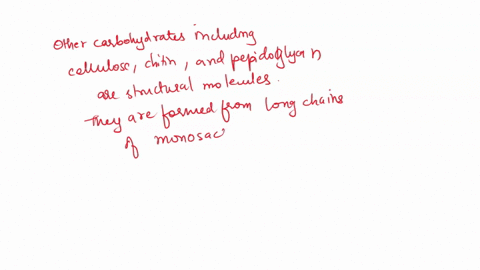 Other carbohydrates including
cellulose, chitin, and pepidoglycan
are structural molecules.
They are formed from long chains
of monosac